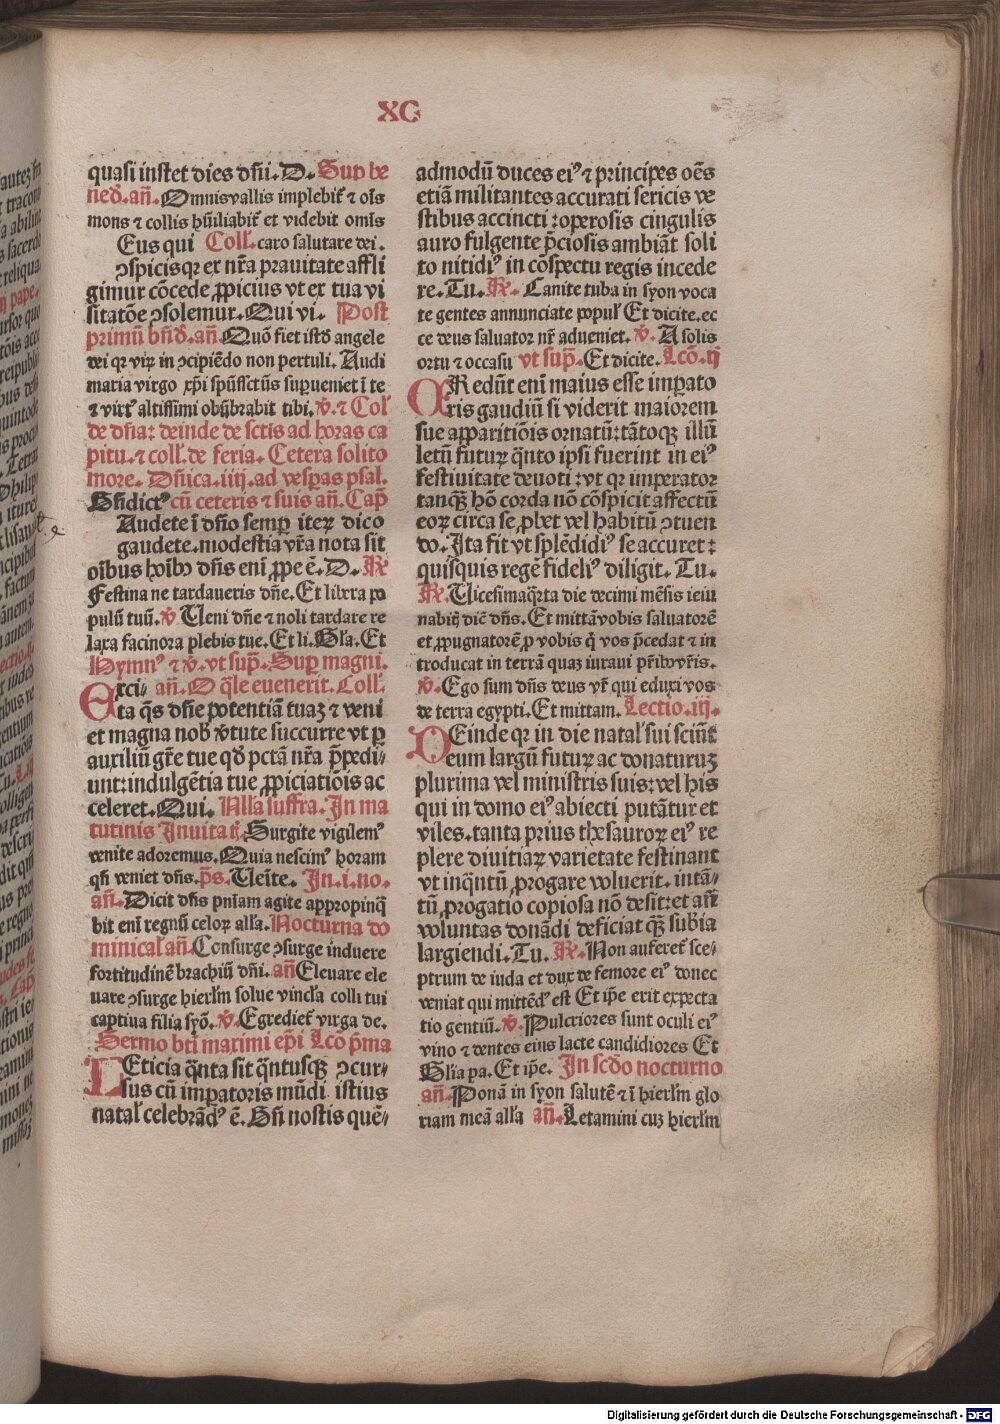 XC
quasi instet dies dn̄i. D. Sup be
ned̄. an̄. Omnis vallis implebit᷑ ⁊ oīs
mons ⁊ collis hūiliabit᷑ et videbit omīs
Eus qui Coll̄. caro salutare dei.
ꝯspicis qꝛ ex nr̄a prauitate affli
gimur cōcede ꝓpicius vt ex tua vi
sitatōe ꝯsolemur. Qui vi. Post
primū bn̄d̄. an̄. Quō fiet istd̄ angele
dei qꝛ viꝝ in ꝯcipiēdo non pertuli. Audi
maria virgo xp̄i spūssctūs supueniet ī te
⁊ virt᷑ altissimi obūbrabit tibi. v̄. ⁊ Col̄
de dn̄a: deinde de sctis ad horas ca
pitu. ⁊ coll̄. de feria. Cetera solito
more. Dn̄ica. iiij. ad vesꝑas psal.
Bn̄dictꝰ cū ceteris ⁊ suis an̄. Cap̄
Audete ī dn̄o semꝑ iteꝝ dico
gaudete. modestia vr̄a nota sit
oībus hoībꝰ dn̄s enī ꝓpe ē. D. R̄
Festina ne tardaueris dn̄e. Et libera po
pulū tuū. v̄ Ueni dn̄e ⁊ noli tardare re
laxa facinora plebis tue. Et li. Gl̄a. Et
Hymnꝰ ⁊ v̄. vt sup̄. Sup magni.
Exci- an̄. O q̄le euenerit. Coll̄.
ta q̄s dn̄e potentiā tuaꝫ ⁊ veni
et magna nob̄ v̄tute succurre vt ꝑ
auxiliū gr̄e tue qd̄ pctā nr̄a p̄pedi-
unt: indulgētia tue ꝓpiciatiōis ac
celeret. Qui. Nll̄a suffra. In ma
tutinis Inuitat̄. Surgite vigilemꝰ
venite adoremus. Quia nescimꝰ horam
qn̄ veniet dn̄s. p̄s. Ueīte. In. i. no.
an̄. Dicit dn̄s pn̄iam agite appropinq̄
bit enī regnū celoꝝ all̄a. Nocturna do
minical̄ an̄. Consurge ꝯsurge induere
fortitudinē brachiū dn̄i. an̄ Eleuare ele
uare ꝯsurge hierl̄m solue vincl̄a colli tui
captiua filia syō. v̄. Egrediet᷑ virga de.
Sermo bt̄i maximi ep̄i Lcō p̄ma
LEticia q̄nta sit q̄ntusqꝫ ꝯcur-
sus cū imꝑatoris mūdi istius
natal̄ celebrād̄ꝰ ē. Bn̄ nostis quē-
admodū duces eiꝰ ⁊ principes oēs
etiā militantes accurati sericis ve
stibus accincti: oꝑosis cingulis
auro fulgente p̄ciosis ambiāt soli
to nitidiꝰ in cōspectu regis incede
re. Tu. R̄. Canite tuba in syon voca
te gentes annunciate popul̄ Et dicite. ec
ce deus saluator nr̄ adueniet. v̄. A solis
ortu ⁊ occasu vt sup̄. Et dicite. Lcō. ij
CRedūt enī maius esse imꝑato
ris gaudiū si viderit maiorem
sue apparitiōis ornatū: tātoqꝫ illū
letū futuꝝ q̄nto ipsi fuerint in eiꝰ
festiuitate deuoti: vt qꝛ imperator
tanqꝫ hō corda nō cōspicit affectū
eoꝝ circa se ꝓbet vel habitū ꝯtuen
do. Ita fit vt splēdidiꝰ se accuret:
quisquis regē fideliꝰ diligit. Tu.
R̄. Uicesimaq̄rta die decimi mēsis ieiu
nabitꝭ diē dn̄s. Et mittā vobis saluatorē
et ꝓpugnatorē ꝓ vobis q̄ vos p̄cedat ⁊ in
troducat in terrā quaꝫ iuraui pr̄ibꝰ vr̄is.
v̄. Ego sum dn̄s deus vr̄ qui eduxi vos
de terra egypti. Et mittam. Lectio. iij.
DEinde qꝛ in die natal̄ sui sciūt
eum largū futuꝝ ac donaturuꝫ
plurima vel ministris suis: vel his
qui in domo eiꝰ abiecti putātur et
viles. tanta prius thesauroꝝ eiꝰ re
plere diuitiaꝝ varietate festinant
vt inq̄ntū ꝓrogare voluerit. intā-
tū ꝓrogatio copiosa nō desit: et an̄
voluntas donādi deficiat qꝫ subia
largiendi. Tu. R̄. Non auferet᷑ sce-
ptrum de iuda et dux de femore eiꝰ donec
veniat qui mittēdꝰ est Et ip̄e erit expecta
tio gentiū. v̄. Pulcriores sunt oculi eiꝰ
vino ⁊ dentes eius lacte candidiores Et
Glīa pa. Et ip̄e. In scd̄o nocturno
an̄. Ponā in syon salutē ⁊ ī hierl̄m glo
riam meā all̄a an̄. Letamini cuꝫ hierl̄m
Digitalisierung gefördert durch die Deutsche Forschungsgemeinschaft - DFG